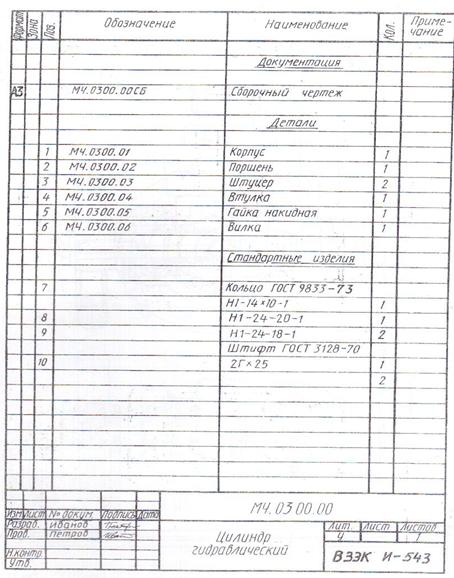 Формат Зона Поз. Обозначение Наименование Кол. Приме-чание
Документация
А3 МЧ.0300.00СБ Сборочный чертеж
Детали
1 МЧ.0300.01 Корпус 1
2 МЧ.0300.02 Поршень 1
3 МЧ.0300.03 Штуцер 2
4 МЧ.0300.04 Втулка 1
5 МЧ.0300.05 Гайка накидная 1
6 МЧ.0300.06 Вилка 1
Стандартные изделия
7 Кольцо ГОСТ 9833-73
Н1-14×10-1 1
8 Н1-24-20-1 1
9 Н1-24-18-1 2
Штифт ГОСТ 3128-70
10 2Г×25 1
2
МЧ.0300.00
Изм Лист № докум. Подпись Дата
Разраб. Иванов
Пров. Петров
Н.контр.
Утв.
Цилиндр
гидравлический
Лит. Лист Листов
У 1
ВЗЭК И-543